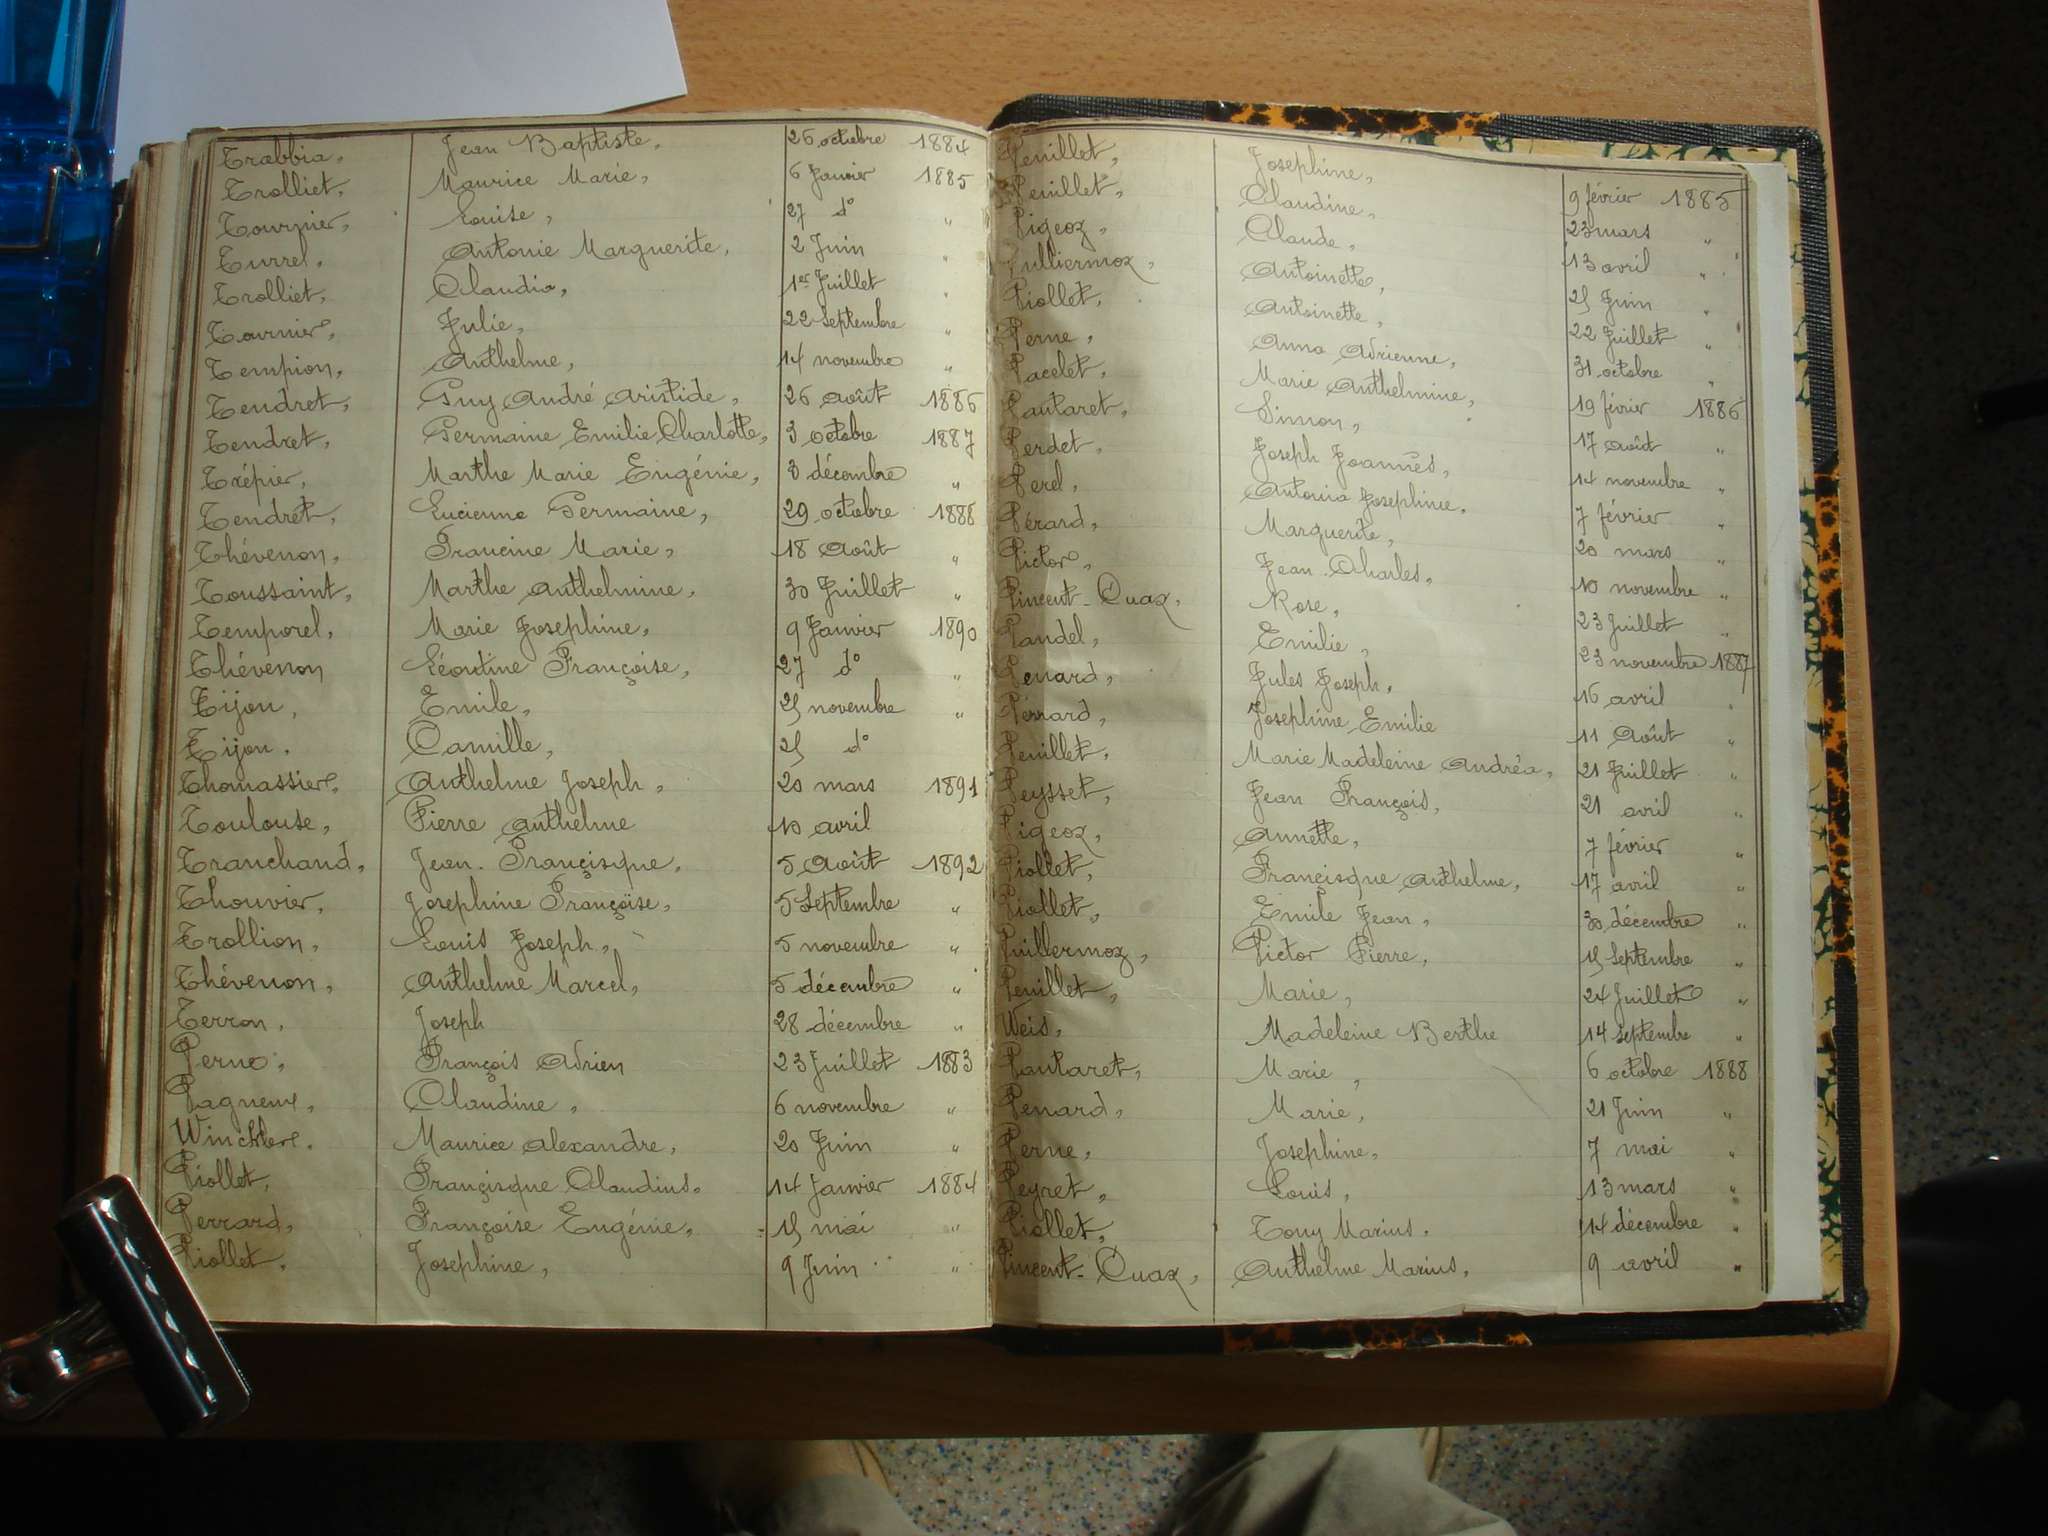 Trabbia, Jean Baptiste, 26 octobre 1884
Trolliet, Maurice Marie, 6 Janvier 1885
Tournier, Louise, 27 d° "
Turrel, Antonie Marguerite, 2 Juin "
Trolliet, Claudia, 1er Juillet "
Tournier, Julie, 22 Septembre "
Tempion, Anthelme, 14 novembre "
Tendret, Guy André Aristide, 26 Août 1886
Tendret, Germaine Emilie Charlotte, 3 octobre 1887
Trépier, Marthe Marie Eugénie, 3 décembre "
Tendret, Lucienne Germaine, 29 octobre 1888
Thévenon, Francine Marie, 18 Août "
Toussaint, Marthe Anthelmine, 30 Juillet "
Temporel, Marie Josephine, 9 Janvier 1890
Thévenon Léontine Françoise, 27 d° "
Tijon, Emile, 25 novembre "
Tijon, Camille, 25 d°
Thomassier, Anthelme Joseph, 20 mars 1891
Toulouse, Pierre Anthelme 10 avril
Tranchand, Jean-Françisque, 5 Août 1892
Thouvier, Josephine Françoise, 5 Septembre "
Trollion, Louis Joseph, 5 novembre "
Thévenon, Anthelme Marcel, 5 décembre "
Terron, Joseph 28 décembre "
Verne, François Adrien 23 Juillet 1883
Vagneux, Claudine, 6 novembre "
Winckler, Maurice Alexandre, 20 Juin "
Viollet, Françisque Claudius, 14 Janvier 1884
Verrard, Françoise Eugénie, 15 mai "
Viollet, Josephine, 9 Juin "
Veuillet, Josephine, 9 février 1885
Veuillet, Claudine, 23 mars "
Vigeoz, Claude, 13 avril "
Vulliermoz, Antoinette, 25 Juin "
Viollet, Antoinette, 22 Juillet "
Verne, Anna Adrienne, 31 octobre "
Vacelet, Marie Anthelmine, 19 février 1886
Vautaret, Simon, 17 Août "
Verdet, Joseph Joannès, 14 novembre "
Verel, Antonia Josephine, 7 février "
Vérard, Marguerite, 20 mars "
Victor, Jean-Charles, 10 novembre "
Vincent-Quaz, Rose, 23 Juillet "
Vandel, Emilie, 23 novembre 1887
Venard, Jules Joseph, 16 avril "
Verrard, Josephine Emilie 11 Août "
Veuillet, Marie Madeleine Andréa, 21 Juillet "
Veysset, Jean François, 21 avril "
Vigeoz, Annette, 7 février "
Viollet, Françisque Anthelme, 17 avril "
Viollet, Emile Jean, 30 décembre "
Vuillermoz, Victor Pierre, 15 Septembre "
Veuillet, Marie, 24 Juillet "
Weis, Madeleine Berthe 14 septembre "
Vautaret, Marie, 6 octobre 1888
Venard, Marie, 21 Juin "
Verne, Josephine, 7 mai "
Veyret, Louis, 13 mars "
Viollet, Tony Marius. 14 décembre "
Vincent-Quaz, Anthelme Marius, 9 avril "